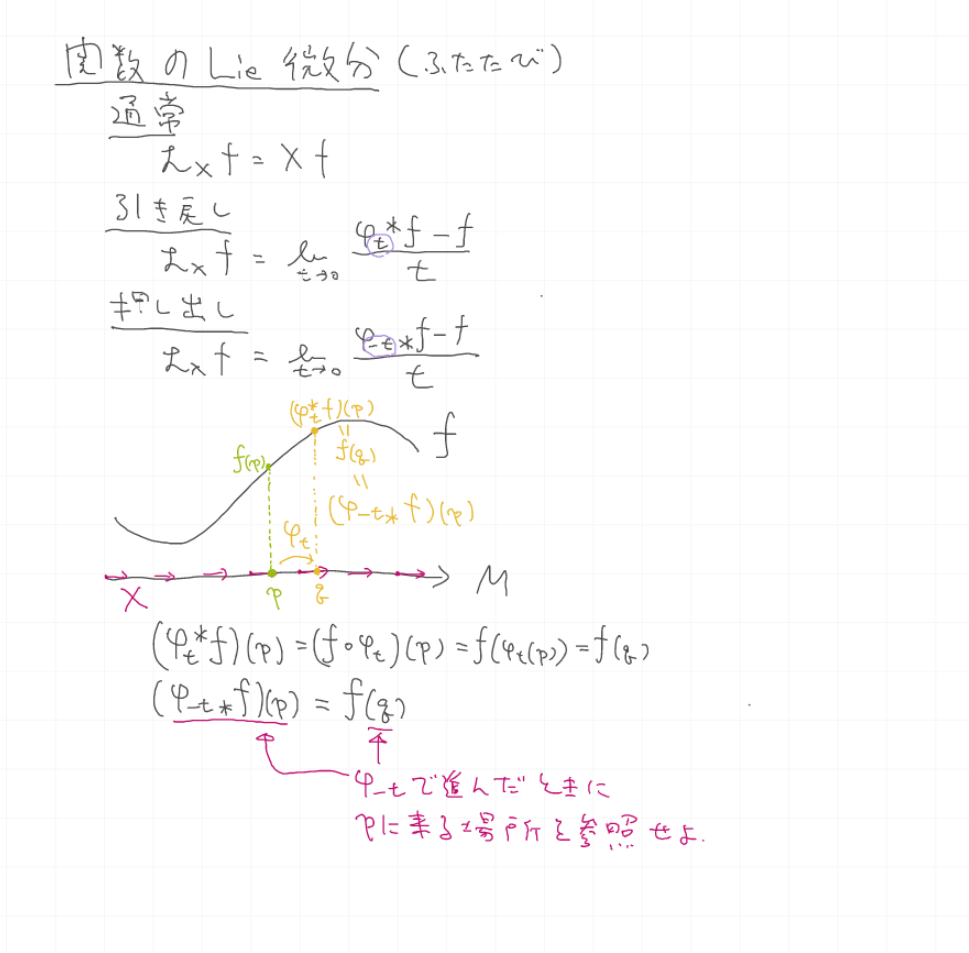 関数の Lie 微分 (ふたたび)
通常
ℒ_X f = X f
引き戻し
ℒ_X f = lim_{t→0} (φ_t^* f − f) / t
押し出し
ℒ_X f = lim_{t→0} (φ_{-t *} f − f) / t
(φ_t^* f)(p)
f
f(p)
=
f(q)
=
(φ_{-t *} f)(p)
φ_t
X
p
q
M
(φ_t^* f)(p) = (f ∘ φ_t)(p) = f(φ_t(p)) = f(q)
(φ_{-t *} f)(p) = f(q)
φ_{-t} で進んだときに
pに来る場所を参照せよ.